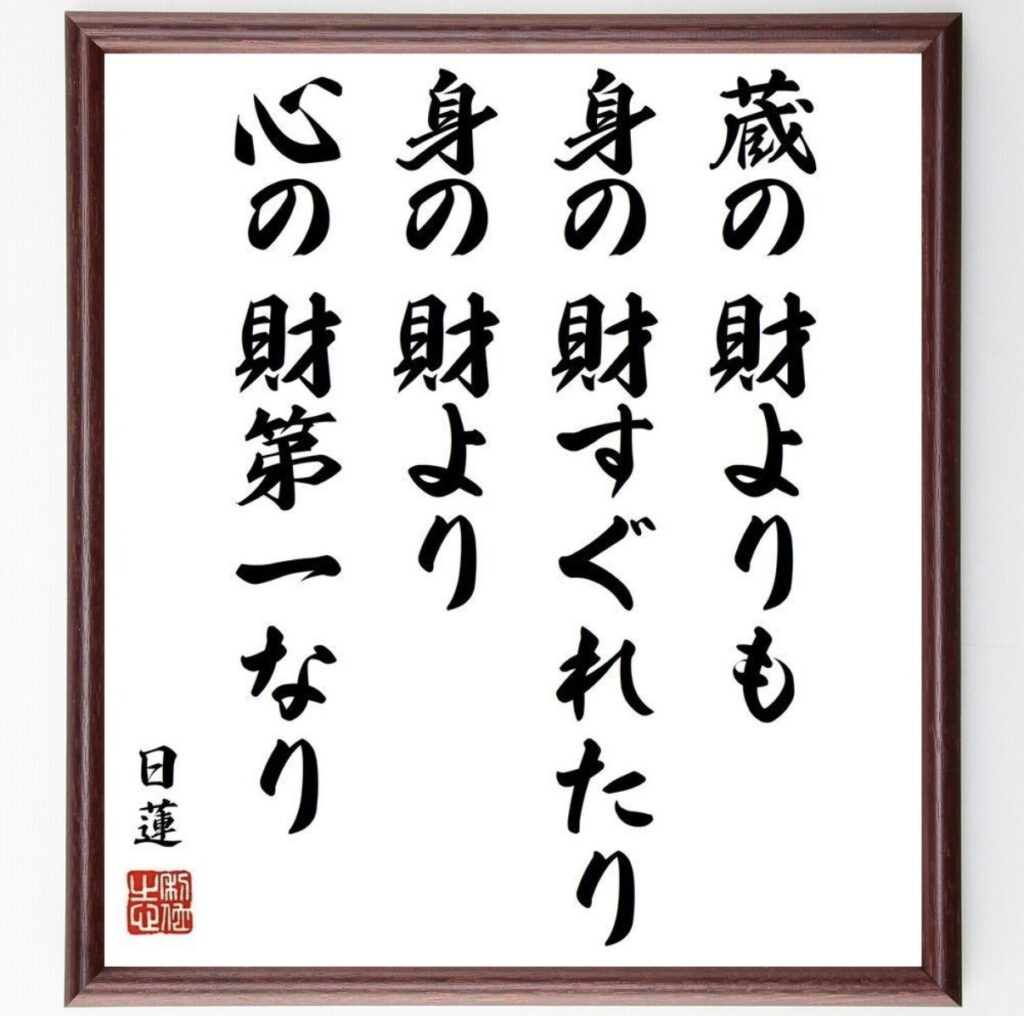 蔵の財よりも
身の財すぐれたり
身の財より
心の財第一なり
日蓮